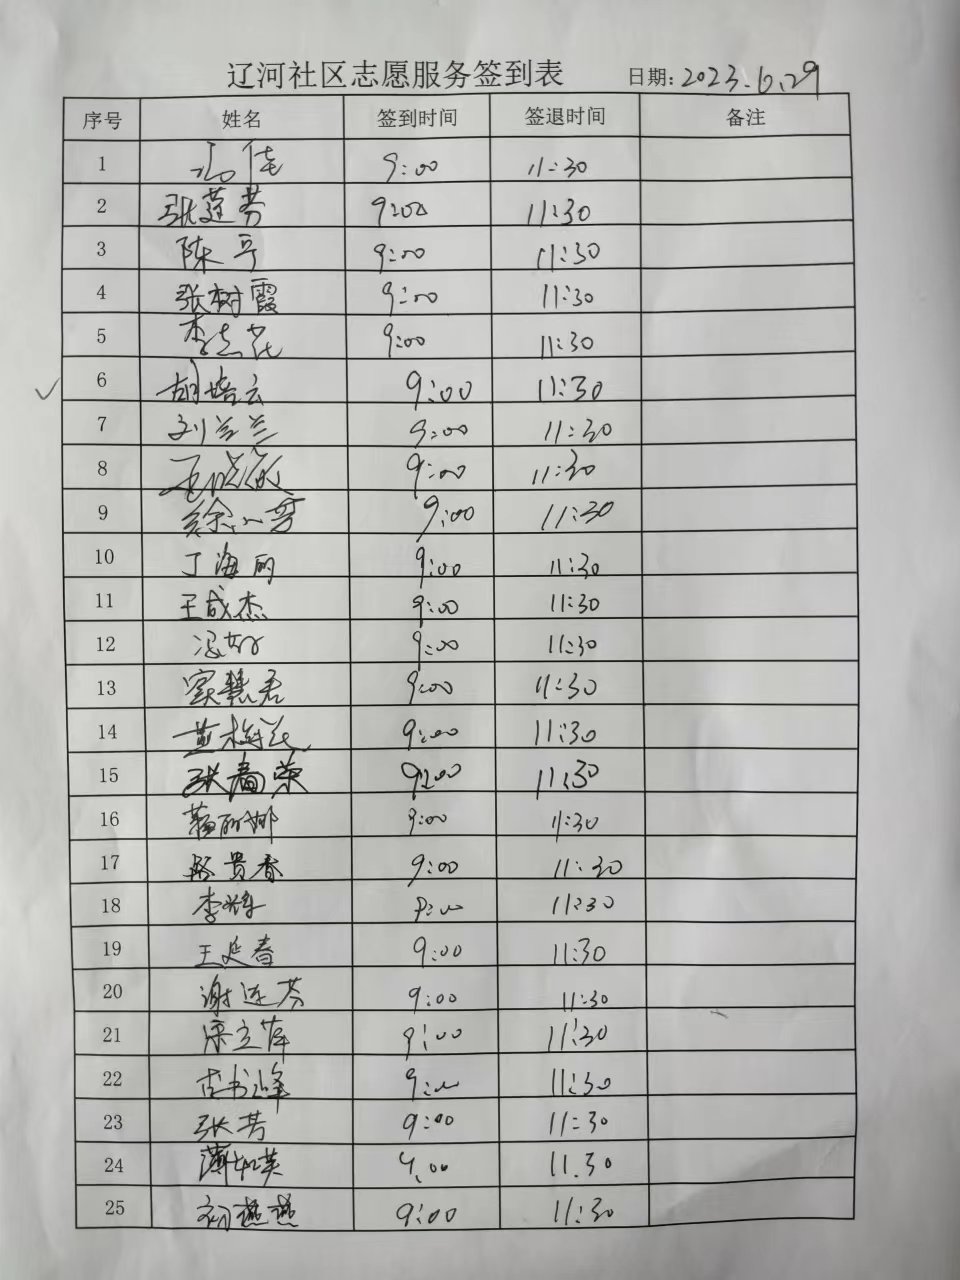 辽河社区志愿服务签到表 日期: 2023.6.29
序号 姓名 签到时间 签退时间 备注
1 冯佳 9:00 11:30
2 张莲芳 9:00 11:30
3 陈宁 9:00 11:30
4 张树霞 9:00 11:30
5 李志花 9:00 11:30
6 胡培云 9:00 11:30
7 刘兰兰 9:00 11:30
8 9:00 11:30
9 徐小芳 9:00 11:30
10 丁海丽 9:00 11:30
11 王成杰 9:00 11:30
12 冯好 9:00 11:30
13 窦慧君 9:00 11:30
14 黄梅花 9:00 11:30
15 张春荣 9:00 11:30
16 丽娜 9:00 11:30
17 路贵香 9:00 11:30
18 李辉 9:00 11:30
19 王延春 9:00 11:30
20 谢连芬 9:00 11:30
21 立萍 9:00 11:30
22 9:00 11:30
23 张芳 9:00 11:30
24 薄如英 9:00 11:30
25 初燕燕 9:00 11:30